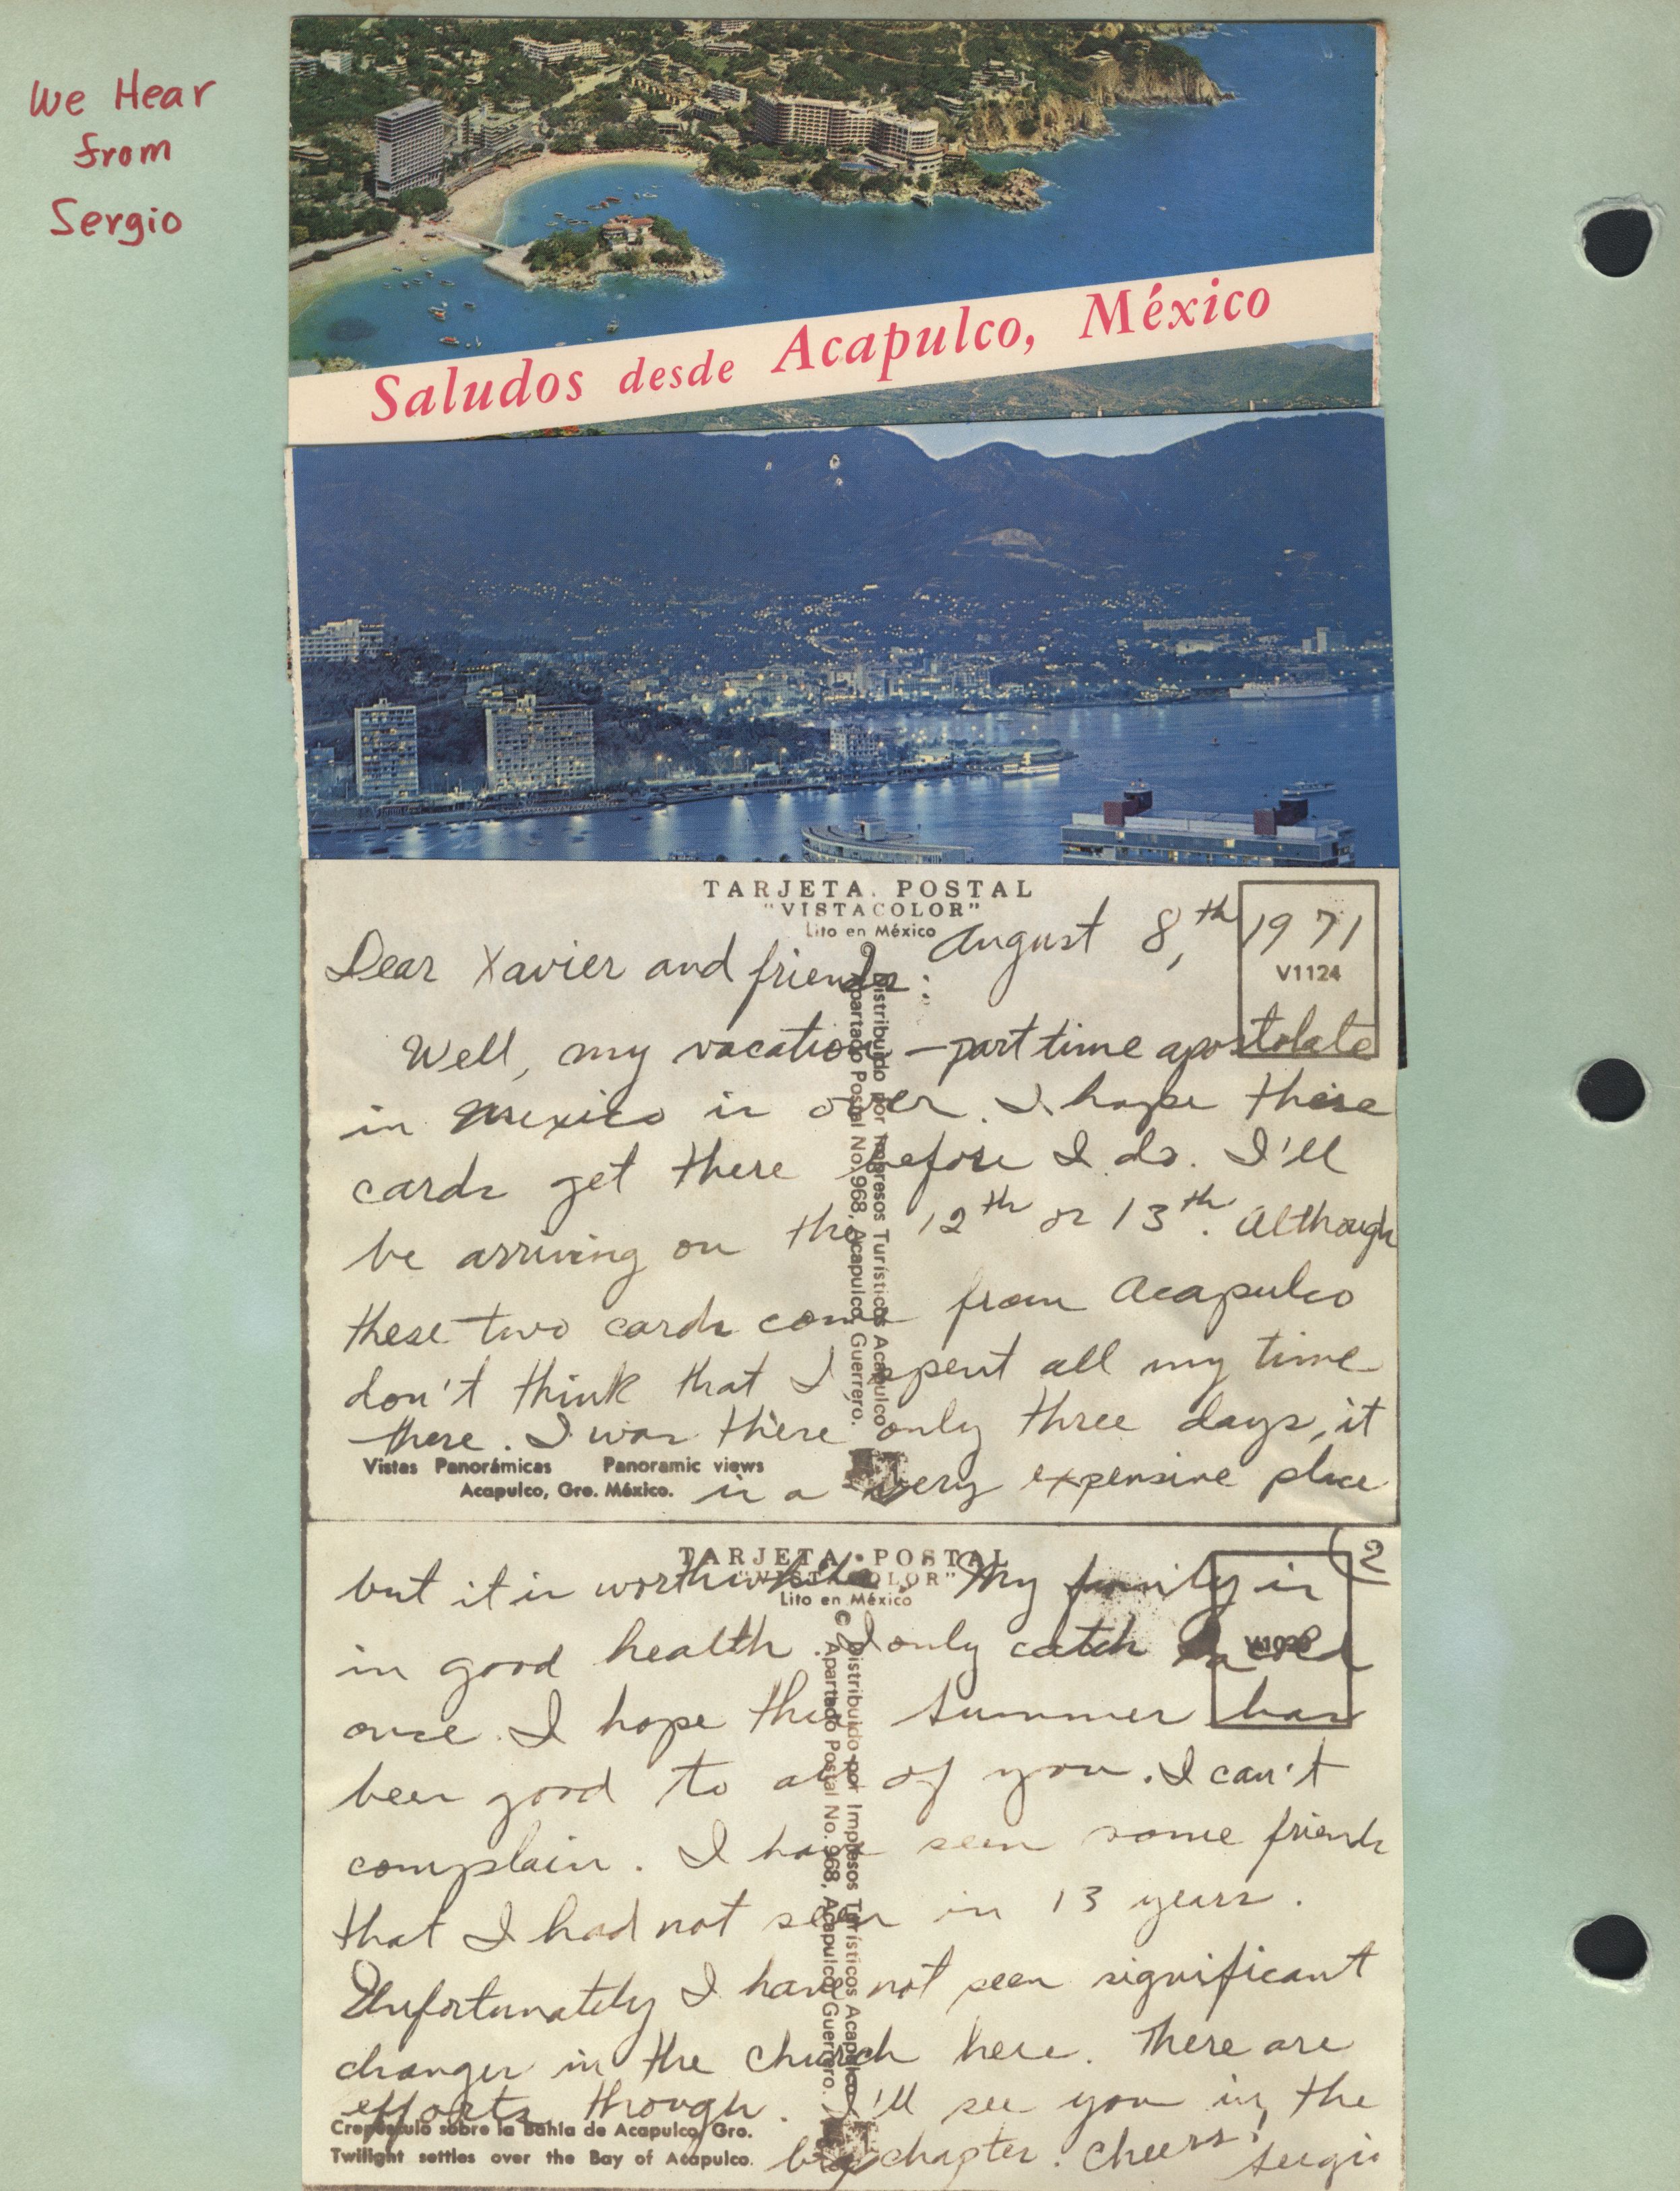 We Hear
from
Sergio
Saludos desde Acapulco, México
TARJETA POSTAL
"VISTACOLOR"
Lito en México
August 8,th 1971
V1124
Dear Xavier and friends:
Well, my vacation - part time apostolate
in Mexico is over. I hope these
cards get there before I do. I'll
be arriving on the 12th or 13th. Although
these two cards come from Acapulco
don't think that I spent all my time
there. I was there only three days, it
is a very expensive place
Vistas Panorámicas Panoramic views
Acapulco, Gro. México.
Distribuido por Impresos Turísticos Acapulco
Apartado Postal No. 968, Acapulco, Guerrero.
2
TARJETA POSTAL
"VISTACOLOR"
Lito en México
but it is worthwhile. My family is
in good health. I only catch a cold
once. I hope this summer has
been good to all of you. I can't
complain. I have seen some friends
that I had not seen in 13 years.
Unfortunately I have not seen significant
changes in the church here. There are
efforts though. I'll see you in the
big chapter. Cheers! Sergio
Crepúsculo sobre la Bahía de Acapulco, Gro.
Twilight settles over the Bay of Acapulco.
© Distribuido por Impresos Turísticos Acapulco
Apartado Postal No. 968, Acapulco, Guerrero.